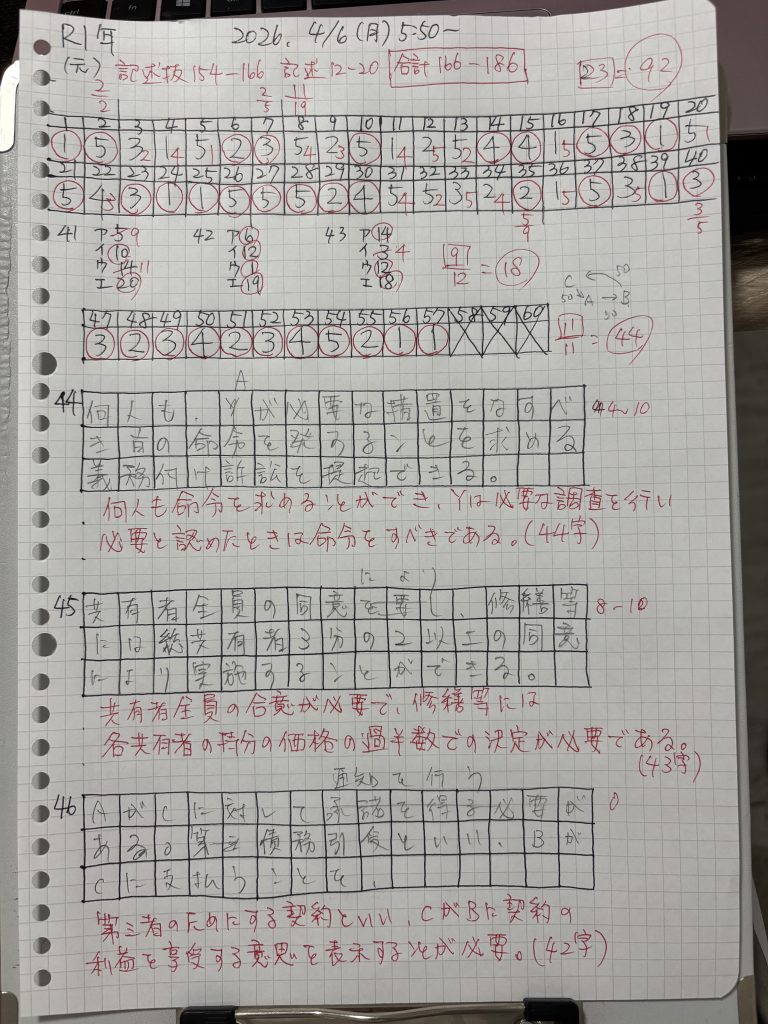 R1年 2026. 4/6 (月) 5:50~
(元) 記述抜 154-166 記述12-20 合計 166-186 23 = 92
2/2 2/5 11/19
1 2 3 4 5 6 7 8 9 10 11 12 13 14 15 16 17 18 19 20
1 5 3 2 1 4 5 1 2 3 5 4 2 3 5 1 4 2 5 5 2 4 4 1 5 5 3 1 5 1
21 22 23 24 25 26 27 28 29 30 31 32 33 34 35 36 37 38 39 40
5 4 3 3 1 1 5 5 5 2 4 5 4 5 2 3 5 2 4 2 1 5 5 3 5 1 3
5/9 3/5
41 ア 5 9 42 ア 6 43 ア 14
イ 10 イ 12 イ 3 4
ウ 14 11 ウ 1 ウ 12
エ 20 エ 19 エ 18
9/12 = 18
C 50
50 A → B
50
47 48 49 50 51 52 53 54 55 56 57 58 59 60
3 2 3 4 2 3 4 5 2 1 1
11/11 = 44
A
44 何人も、Yが必要な措置をなすべ 4~10
き旨の命令を発することを求める
義務付け訴訟を提起できる。
何人も命令を求めることができ、Yは必要な調査を行い
必要と認めたときは命令をすべきである。(44字)
により
45 共有者全員の同意を要し、修繕等 8-10
には総共有者3分の2以上の同意
により実施することができる。
共有者全員の合意が必要で、修繕等には
各共有者の持分の価格の過半数での決定が必要である。
(43字)
通知を行う
46 AがCに対して承諾を得る必要が 0
ある。第三債務引受といい、Bが
Cに支払うことを、
第三者のためにする契約といい、CがBに契約の
利益を享受する意思を表示することが必要。(42字)